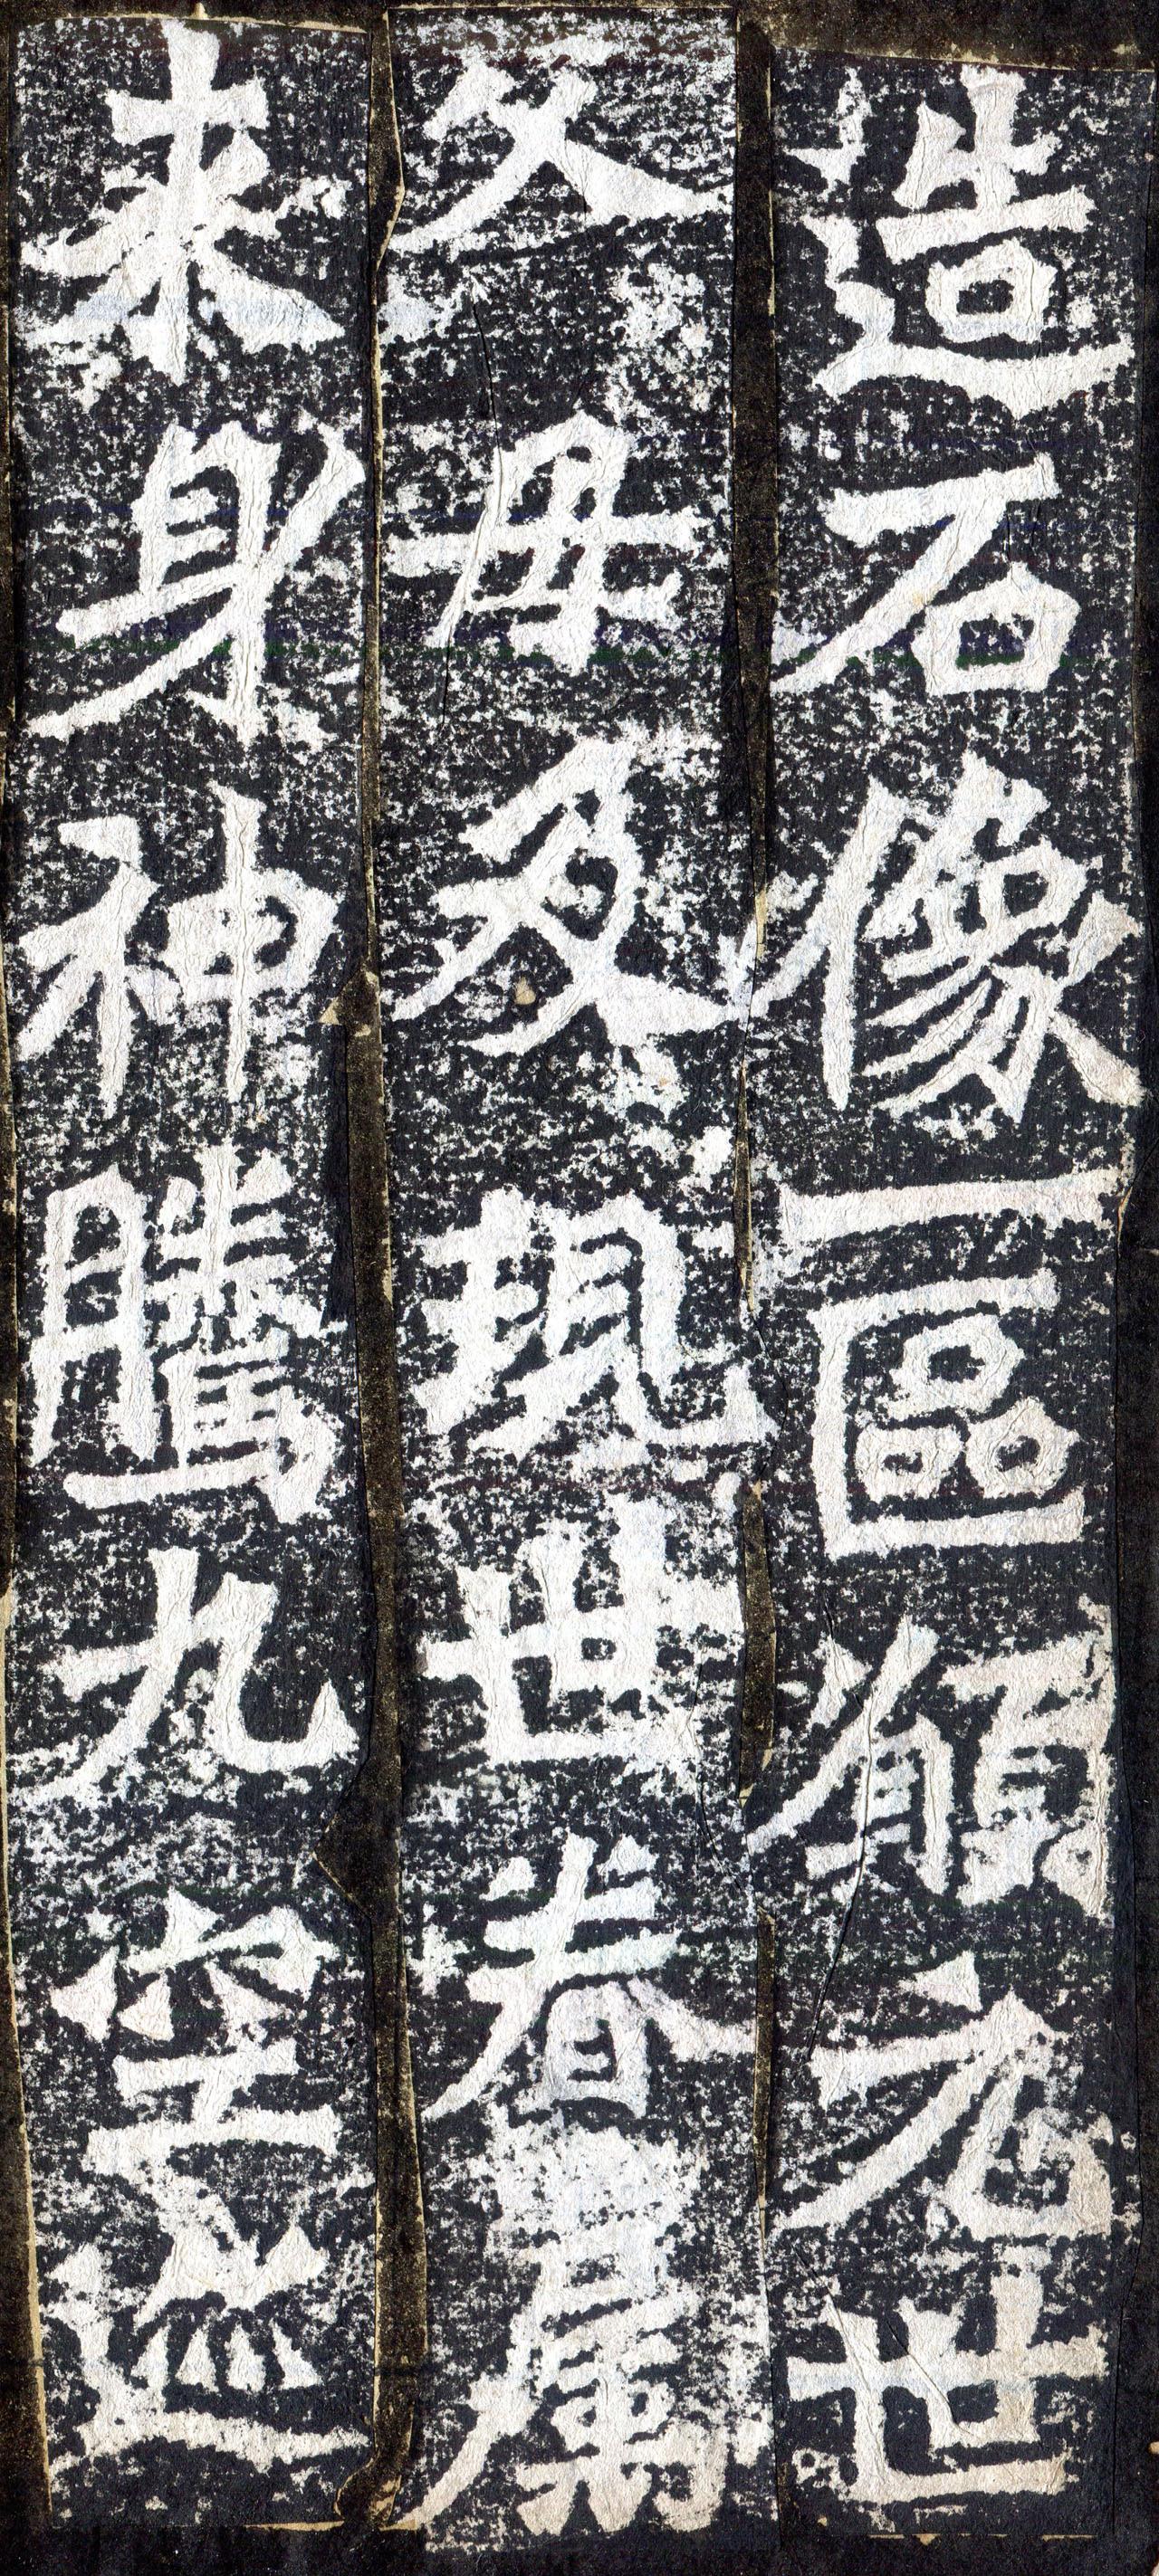 造石像一區願元世
父母及現世眷屬
來身神騰九空迹